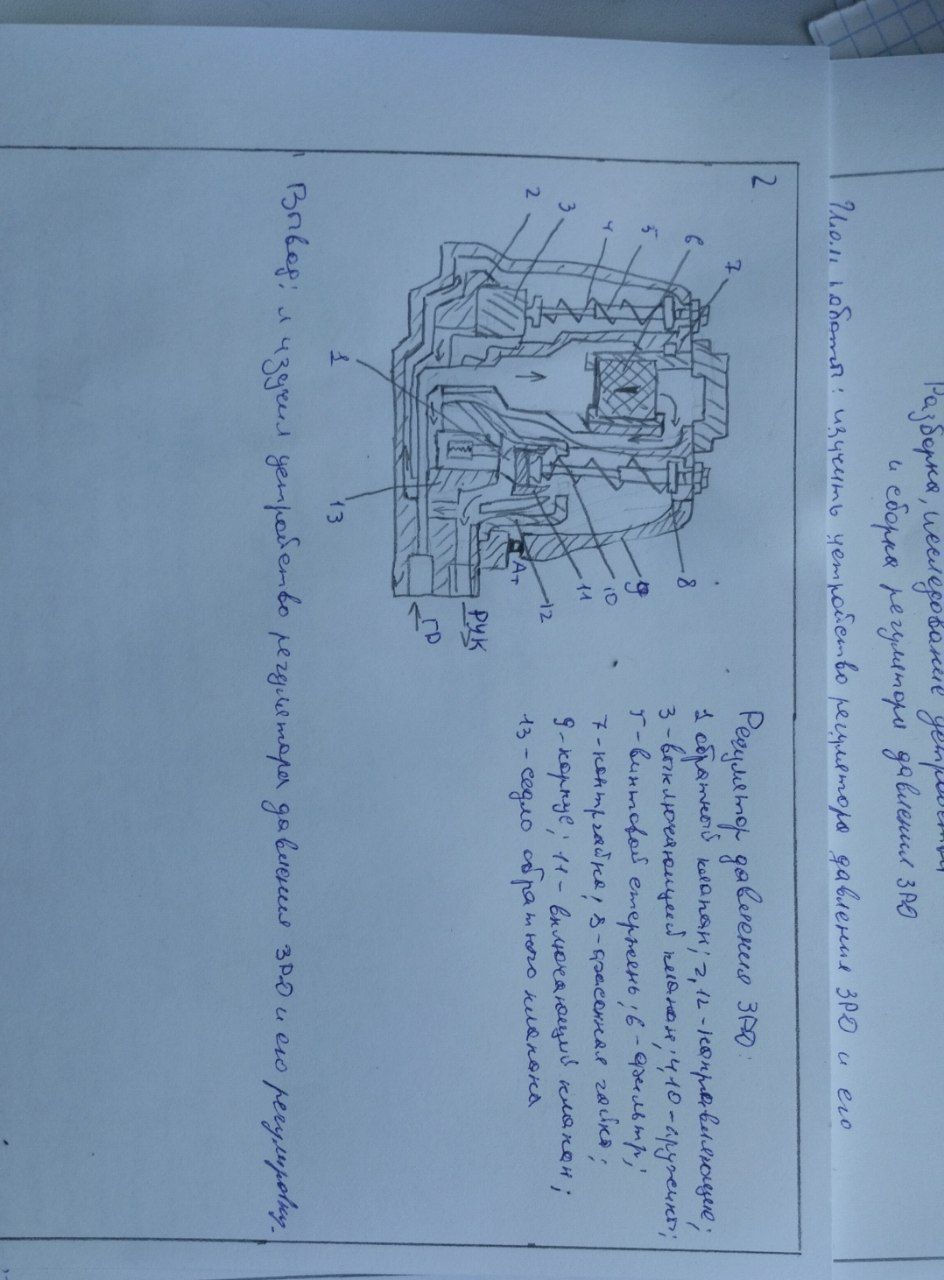 Разборка, исследование устройства
и сборка регулятора давления ЗРД
работы: изучить устройство регулятора давления ЗРД и его
2
Регулятор давления ЗРД:
1 обратный клапан; 2,12 - направляющие;
3 - выключающий клапан; 4,10 - пружины;
5 - винтовой стержень; 6 - фильтр;
7 - контргайка; 8 - фасонная гайка;
9 - корпус; 11 - включающий клапан;
13 - седло обратного клапана
2
3
4
5
6
7
1
13
12
11
10
9
8
Ат
РУК
ГР
Вывод: я изучил устройство регулятора давления ЗРД и его регулировку.